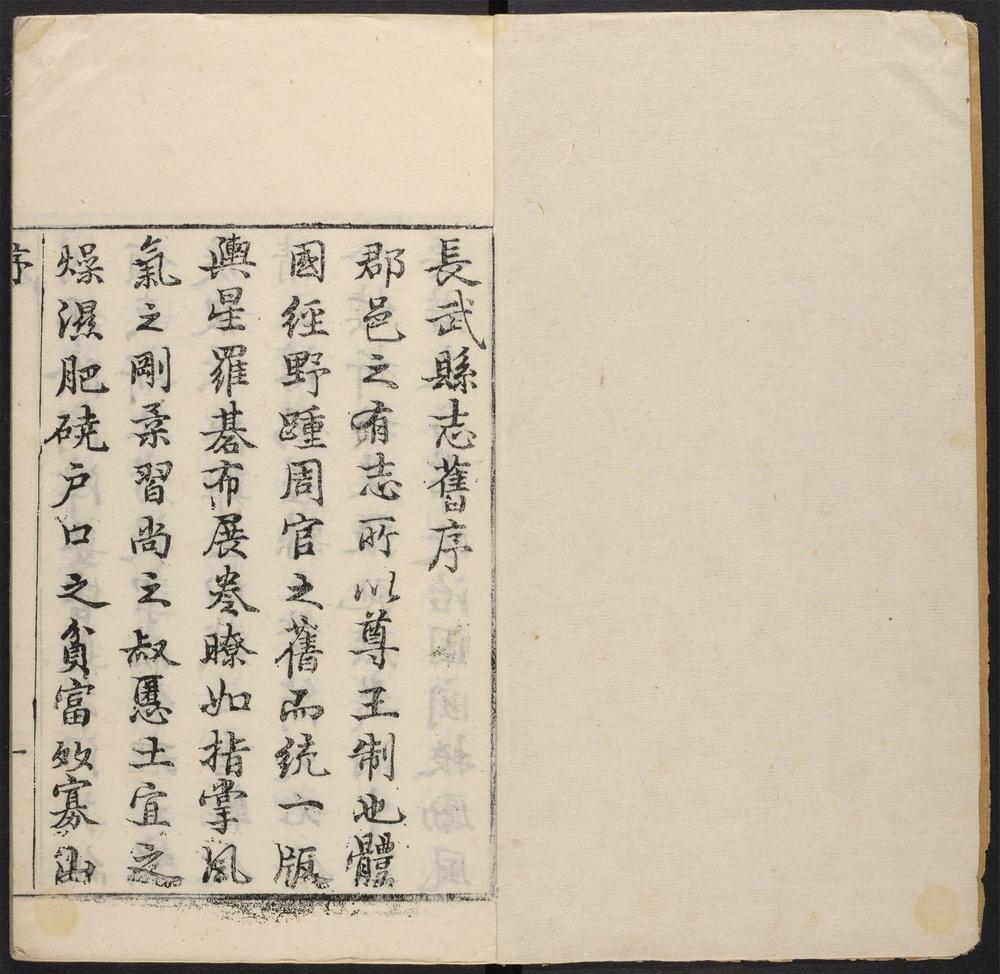 長武縣志舊序
郡邑之有志所以尊王制也體
國經野踵周官之舊而統一版
輿星羅碁布展卷瞭如指掌風
氣之剛柔習尚之淑慝土宜之
燥濕肥磽户口之貧富多寡山
序
一